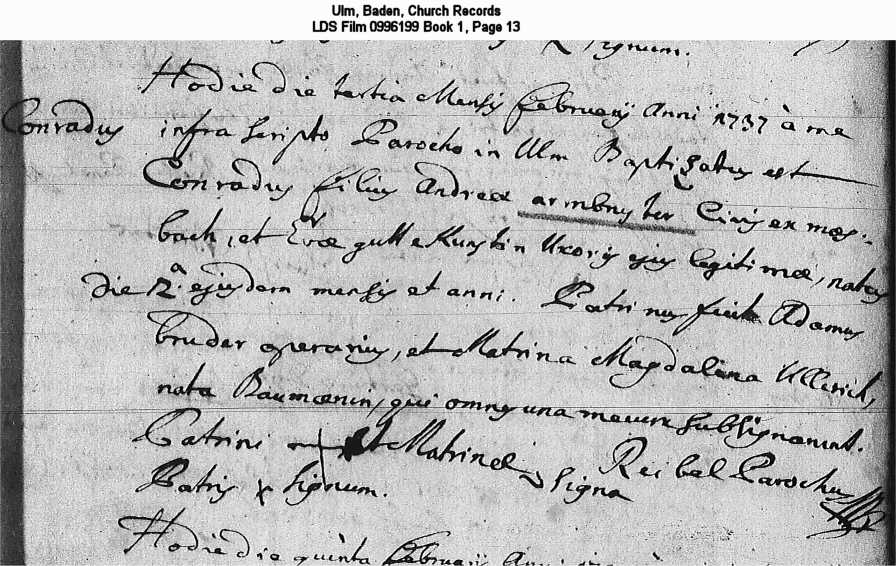 Ulm, Baden, Church Records
LDS Film 0996199 Book 1, Page 13
Signum.
Hodie die tertia Mensis Februarij Anni 1737 à me
Conradus infra scripto Parocho in Ulm Baptizatus est
Conradus filius Andreæ armbruster Civis ex mös-
bach, et Evæ guttekunstin Uxoris ejus legitimæ, natus
die 2.a ejusdem mensis et anni. Patrinus fuit Adamus
bruder operarius, et Matrina Magdalena Ullerich,
nata Baumænin, qui omnes una mecum subsignarunt.
Patrini et Matrinæ Signa Reibel Parochus
Patris x signum.
Hodie die quinta Februarij Anni